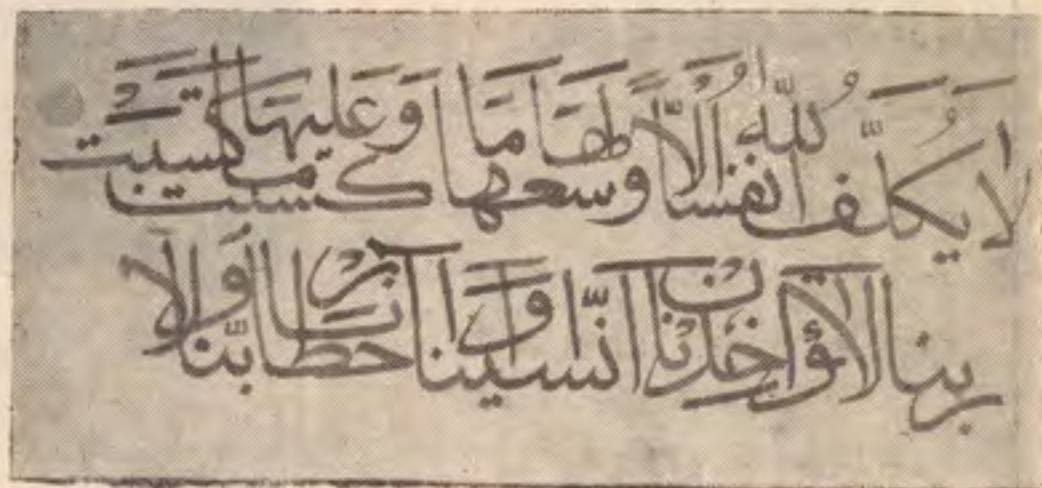 لا يُكَلِّفُ اللهُ نفسًا إلّا وُسعها لَهَا مَا كسبت وَعَليهَا مَا اكتسبت
ربنا لا تؤاخِذنا إن نّسينا أَو أخطأنا ربّنا وَلا